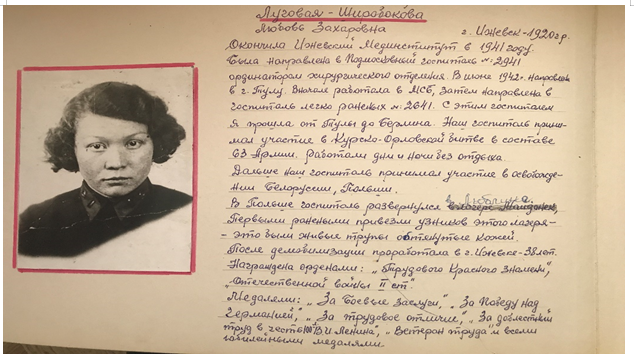 Луговая - Широбокова
Любовь Захаровна г. Ижевск - 1920гр.
Окончила Ижевский Мединститут в 1941 году.
Была направлена в Подмосковный госпиталь №2941
ординатором хирургического отделения. В июне 1942г. направлена
в г. Тулу. Вначале работала в МСБ, затем направлена в
госпиталь легко раненых №2641. С этим госпиталем
я прошла от Тулы до Берлина. Наш госпиталь прини-
мал участие в Курско-Орловской битве в составе
63 Армии. Работали дни и ночи без отдыха.
Дальше наш госпиталь принимал участие в освобожде-
нии Белоруссии, Польши.
В Польше госпиталь развернулся в лагере Майданек,
Первыми ранеными привезли узников этого лагеря -
- это были живые трупы обтянутые кожей.
После демобилизации проработала в г. Ижевске - 38 лет.
Награждена орденами: „Трудового Красного знамени",
„Отечественной войны II ст"
Медалями: „За боевые заслуги", „За Победу над
Германией", „За трудовое отличие", „За доблестный
труд в честь 100 В И Ленина", „Ветеран труда" и всеми
юбилейными медалями